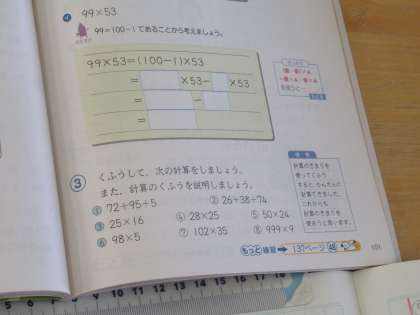 4 99×53
99=100-1であることから考えましょう。
99×53=(100-1)×53
= ×53- ×53
= -
=
3 くふうして、次の計算をしましょう。
また、計算のくふうを説明しましょう。
① 72+95+5 ② 26+38+74
③ 25×16 ④ 28×25 ⑤ 50×24
⑥ 98×5 ⑦ 102×35 ⑧ 999×9
計算のきまりを
使ってくふう
すると、かんたんに
計算できました。
これからも
計算のきまりを
使おうと思います。
もっと練習 137ページ 48
101
5 6 7 8 9 10 11 12 13 14 15 16 17 18